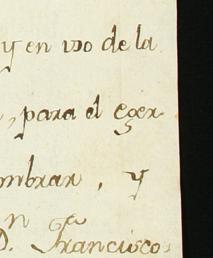 y en uso de la
, para el exer-
ombrar, y
D.n Fran.cisco